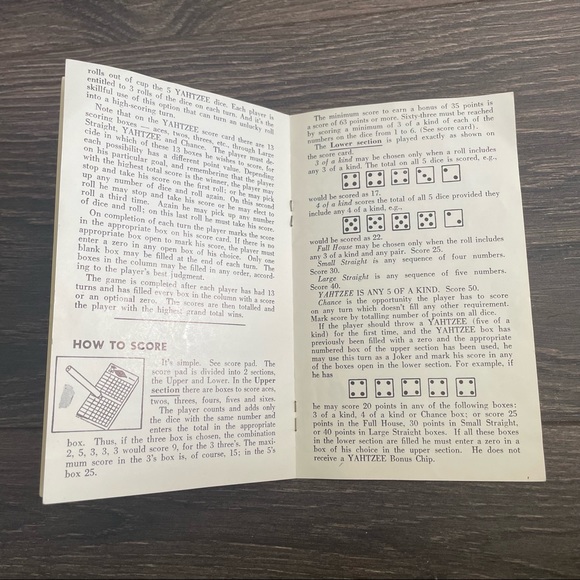 rolls out of cup the 5 YAHTZEE dice. Each player is
entitled to 3 rolls of the dice on each turn. And it's the
skillful use of this option that can turn an unlucky roll
into a high-scoring turn.
Note that on the YAHTZEE score card there are 13
scoring boxes — aces, twos, threes, etc., through Large
Straight, YAHTZEE and Chance. The player must de-
cide in which of these 13 boxes he wishes to score, for
each possibility has a different point value. Depending
on his particular goal, and remembering that the player
with the highest total score is the winner, the player may
stop and take his score on the first roll; or he may pick
up any number of dice and roll again. On this second
roll he may stop and take his score or he may elect to
roll a third time. Again he may pick up any number
of dice and roll; on this last roll he must take his score.
On completion of each turn the player marks the score
in the appropriate box on his score card. If there is no
appropriate box open to mark his score, the player must
enter a zero in any open box of his choice. Only one
blank box may be filled at the end of each turn. The
boxes in the column may be filled in any order, accord-
ing to the player's best judgment.
The game is completed after each player has had 13
turns and has filled every box in the column with a score
or an optional zero. The scores are then totalled and
the player with the highest grand total wins.
HOW TO SCORE
It's simple. See score pad. The
score pad is divided into 2 sections,
the Upper and Lower. In the Upper
section there are boxes to score aces,
twos, threes, fours, fives and sixes.
The player counts and adds only
the dice with the same number and
enters the total in the appropriate
box. Thus, if the three box is chosen, the combination
2, 5, 3, 3, 3 would score 9, for the 3 three's. The maxi-
mum score in the 3's box is, of course, 15; in the 5's
box 25.
The minimum score to earn a bonus of 35 points is
a score of 63 points or more. Sixty-three must be reached
by scoring a minimum of 3 of a kind of each of the
numbers on the dice from 1 to 6. (See score card).
The Lower section is played exactly as shown on
the score card.
3 of a kind may be chosen only when a roll includes
any 3 of a kind. The total on all 5 dice is scored, e.g.,
would be scored as 17.
4 of a kind scores the total of all 5 dice provided they
include any 4 of a kind, e.g.,
would be scored as 22.
Full House may be chosen only when the roll includes
any 3 of a kind and any pair. Score 25.
Small Straight is any sequence of four numbers.
Score 30.
Large Straight is any sequence of five numbers.
Score 40.
YAHTZEE IS ANY 5 OF A KIND. Score 50.
Chance is the opportunity the player has to score
on any turn which doesn't fill any other requirement.
Mark score by totalling number of points on all dice.
If the player should throw a YAHTZEE (five of a
kind) for the first time, and the YAHTZEE box has
previously been filled with a zero and the appropriate
numbered box of the upper section has been used, he
may use this turn as a Joker and mark his score in any
of the boxes open in the lower section. For example, if
he has
he may score 20 points in any of the following boxes:
3 of a kind, 4 of a kind or Chance box; or score 25
points in the Full House, 30 points in Small Straight,
or 40 points in Large Straight boxes. If all these boxes
in the lower section are filled he must enter a zero in a
box of his choice in the upper section. He does not
receive a YAHTZEE Bonus Chip.